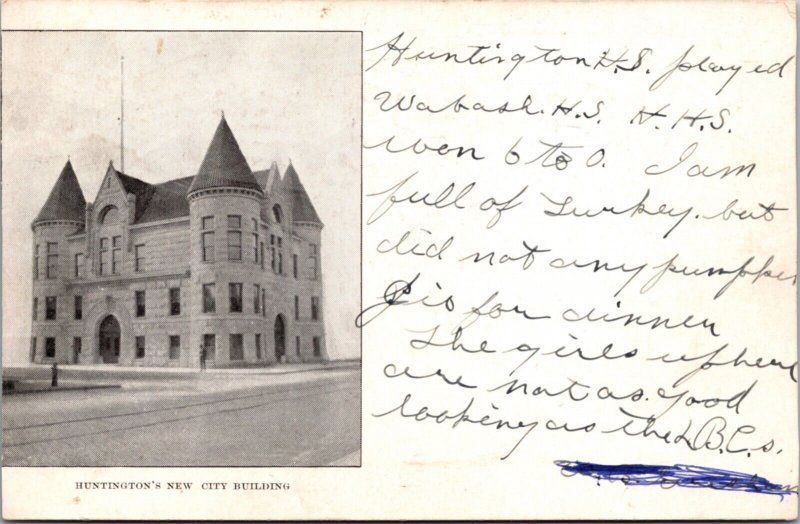 Huntington H.S. played
Wabash. H.S. H.H.S.
won 6 to 0. I am
full of Turkey. but
did not any pumpkin
Pie for dinner
The girls up here
are not as good
looking as the L.B.C.s.
HUNTINGTON'S NEW CITY BUILDING